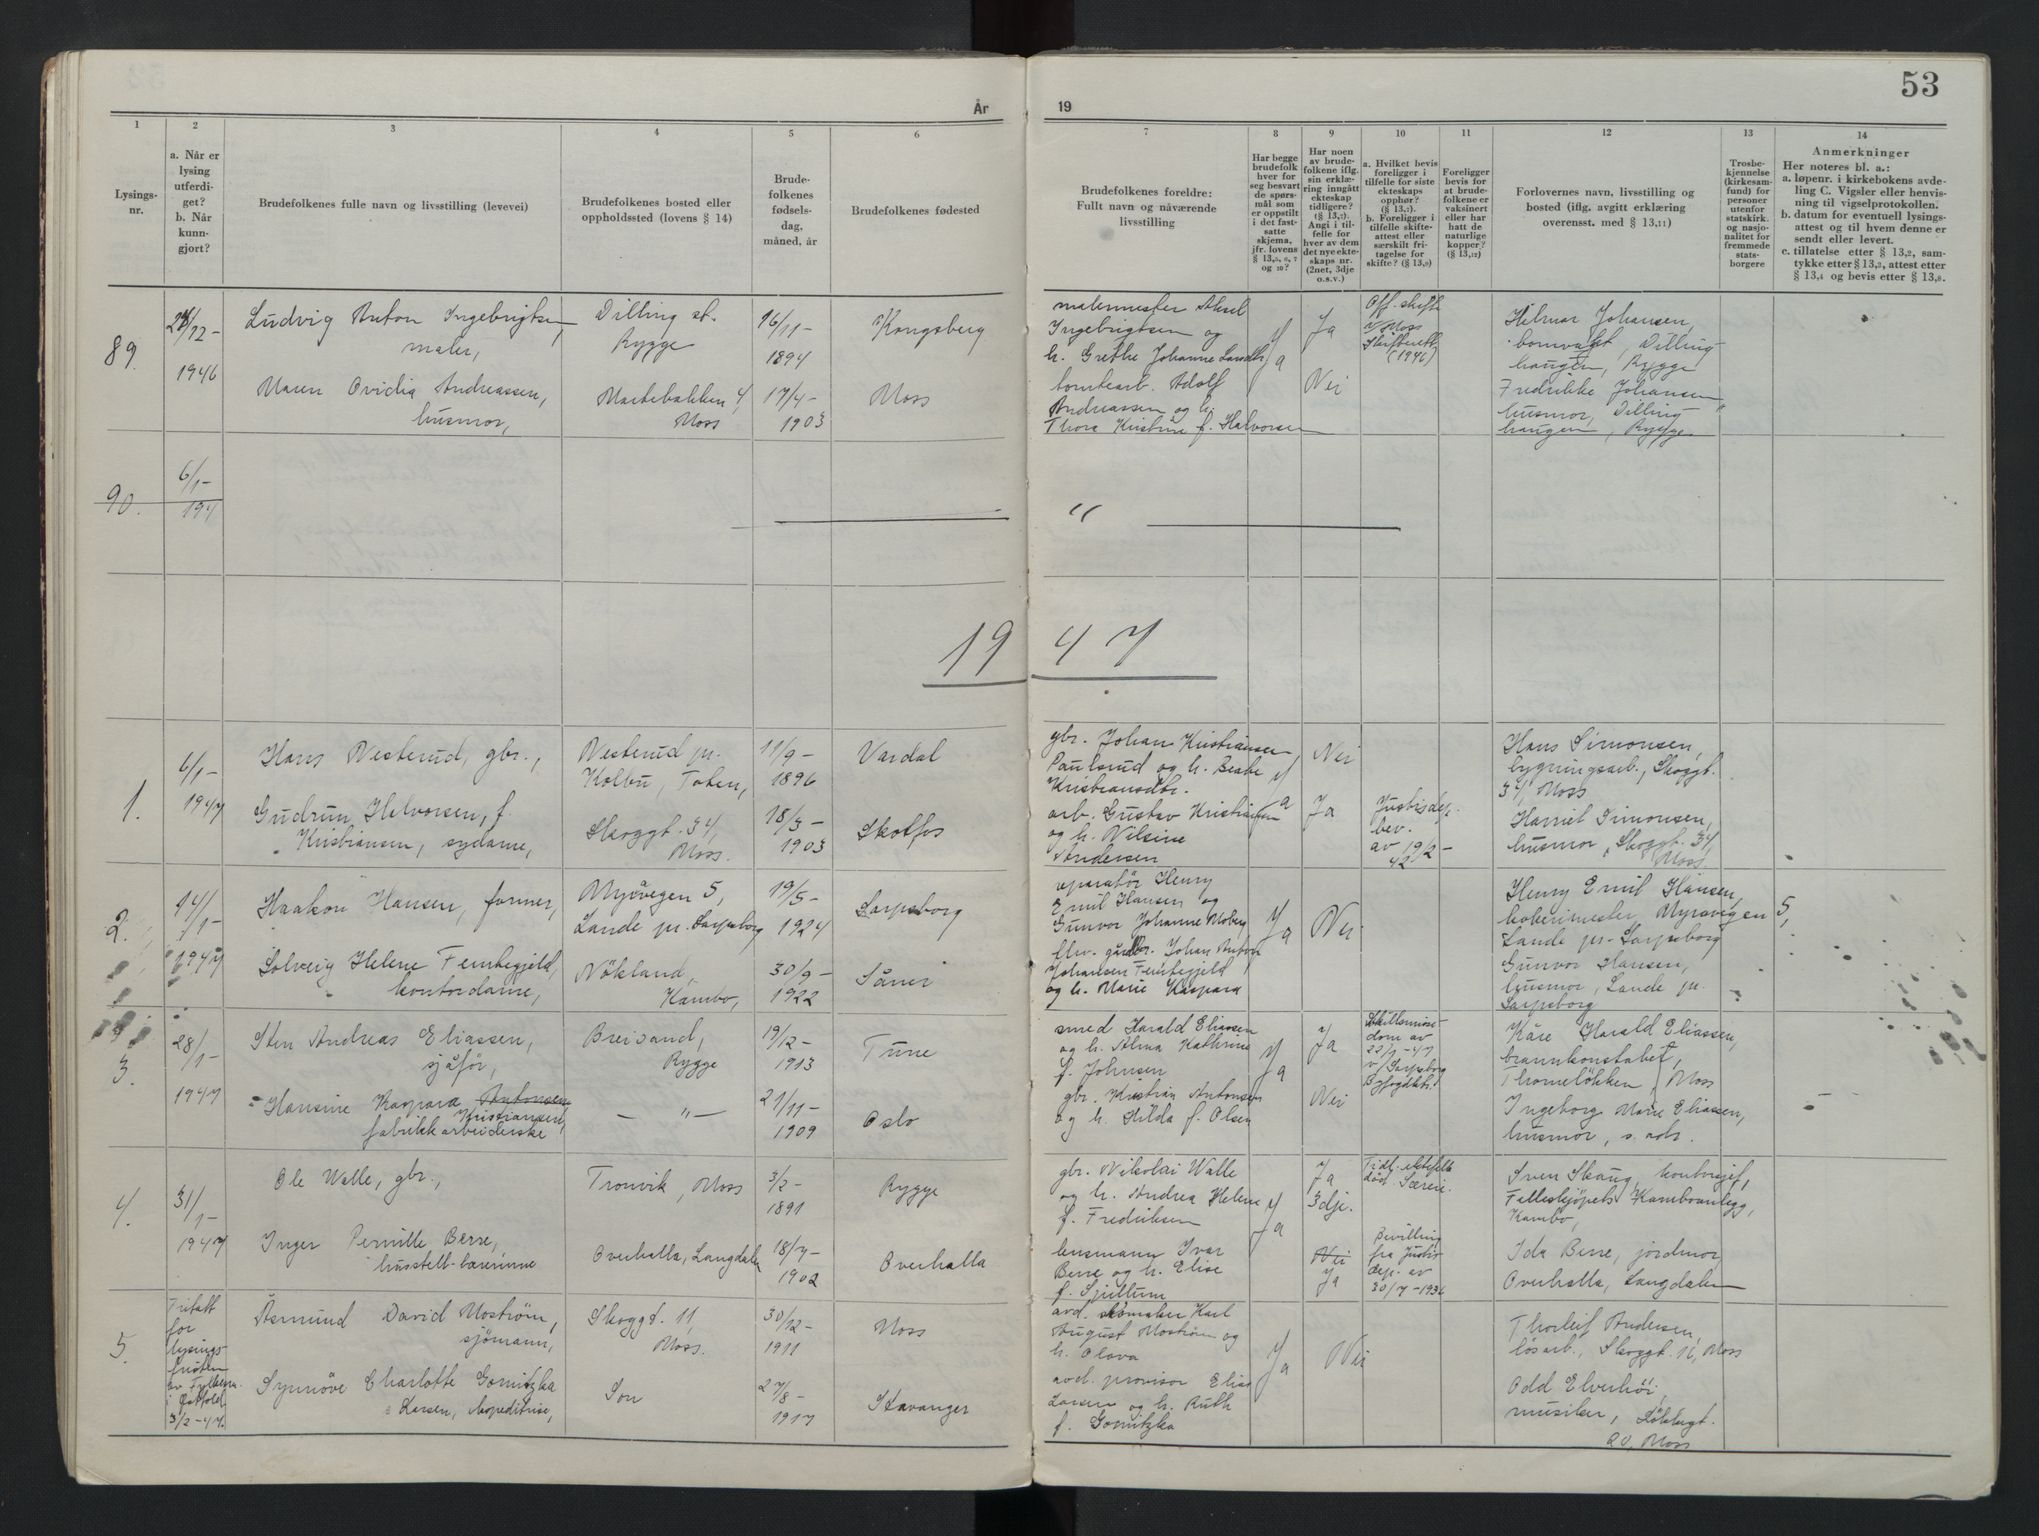 53
År
19
1
2
3
4
5
6
7
8
9
10
11
12
13
14
Lysings-
nr.
a. Når er
lysing
utferdi-
get?
b. Når
kunn-
gjort?
Brudefolkenes fulle navn og livsstilling (levevei)
Brudefolkenes bosted eller
oppholdssted (lovens § 14)
Brude-
folkenes
fødsels-
dag,
måned, år
Brudefolkenes fødested
Brudefolkenes foreldre:
Fullt navn og nåværende
livsstilling
Har begge
brudefolk
hver for
seg besvart
de spørs-
mål som
er oppstilt
i det fast-
satte
skjema,
jfr. lovens
§ 13,5, 6, 7
og 10?
Har noen
av brude-
folkene iflg.
sin erklæ-
ring inngått
ekteskap
tidligere?
(§ 13,7).
Angi i til-
felle for
hver av dem
det nye ekte-
skaps nr.
(2net, 3dje
o.s.v.)
a. Hvilket bevis
foreligger i
tilfelle for siste
ekteskaps
opphør?
(§ 13,7).
b. Foreligger i
tilfelle skifte-
attest eller
særskilt fri-
tagelse for
skifte? (§ 13,9)
Foreligger
bevis for
at brude-
folkene er
vaksinert
eller har
hatt de
naturlige
kopper?
(§ 13,12)
Forlovernes navn, livsstilling og
bosted (iflg. avgitt erklæring
overensst. med § 13,11)
Trosbe-
kjennelse
(kirkesam-
fund) for
personer
utenfor
statskirk.
og nasjo-
nalitet for
fremmede
stats-
borgere
Anmerkninger
Her noteres bl. a.:
a. løpenr. i kirkebokens avde-
ling C. Vigsler eller henvis-
ning til vigselprotokollen.
b. datum for eventuell lysings-
attest og til hvem denne er
sendt eller levert.
c. tillatelse etter § 13,2, sam-
tykke etter § 13,3, attest etter
§ 13,4 og bevis etter § 13,8.
89.
/12-
1946
Ludvig Anton Ingebrigtsen,
maler,
Dilling st.
Rygge
16/11-
1894
Kongsberg
malermester Aksel
Ingebrigtsen og
h. Grethe Johanne
Ja
Ja
Off. skifte
v/Moss
Skifterett
(1946)
Hilmar Johansen,
bomvakt, Dilling-
haugen, Rygge
Maren Ovidia Andreassen,
husmor,
4,
Moss
17/4-
1903
Moss
Adolf
Andreassen og h.
Thora Kristine f. Halvorsen
Nei
Fredrikke Johansen
husmor, Dilling-
haugen, Rygge
90.
6/1-
194
— " —
19 47
1.
6/1-
1947
Hans Vesterud, gbr.,
Vesterud pr.
Kolbu, Toten,
11/9-
1896
Vardal
gbr. Johan Kristiansen
Paulsrud og h. Beate
Kristiansdtr.
Ja
Nei
Hans Simonsen,
bygningsarb., Skoggt.
34, Moss
Gudrun Halvorsen, f.
Kristiansen, sydame,
Skoggt. 34,
Moss.
18/3-
1903
Skotfos
arb. Gustav Kristiansen
og h. Nilsine
Andersen
Ja
Justisdep.
bev.
av 19/2-
42
Harriet Simonsen,
husmor, Skoggt. 34,
Moss
2.
14/1-
1947
Haakon Hansen, former,
Myrvegen 5,
Lande pr. Sarpsborg
19/5-
1924
Sarpsborg
reparatør Henry
Emil Hansen og
Gunvor Johanne Moberg
Ja
Nei
Henry Emil Hansen,
Myravegen 5,
Lande pr. Sarpsborg
Solveig Helene Femtegjeld,
kontordame,
Nökland,
Kambo,
30/9-
1922
Såner
gårdbr. Johan Anton
Johansen Femtegjeld
og h. Marie Kaspara
Gunvor Hansen,
husmor, Lande pr.
Sarpsborg
3.
28/1-
1947
Sten Andreas Eliassen,
sjåför,
Breisand,
Rygge
19/12-
1913
Tune
smed Harald Eliassen
og h. Alma Kathrine
f. Johnsen
Ja
Ja
Skillsmisse-
dom av
22/1-47
v/Sarpsborg
Kåre Harald Eliassen,
brannkonstabel,
Thomelökken, Moss
Hansine Kaspara Antonsen
Kristiansen,
fabrikkarbeiderske
— " —
21/11-
1909
Oslo
gbr. Kristian Antonsen
og h. Hilda f. Olsen
Nei
Ingeborg Marie Eliassen,
husmor, s. adr.
4.
31/1-
1947
Ole Walle, gbr.,
Tronvik, Moss
3/2-
1891
Rygge
gbr. Nikolai Walle
og h. Andrea Helene
f. Fredriksen
Ja
Ja
3dje.
Tidl. ektefelle
död.
Sven Skaug, kontorsjef,
Felleskjöpets Kamboanlegg,
Kambo,
Inger Pernille Berre,
husstell-lærerinne
Overhalla, Langdalen
18/7-
1902
Overhalla
lensmann Ivar
Berre og h. Elise
f. Spillum
Nei
Ja
Bevilling
fra Justis-
dep. av
30/7-1936
Ida Berre, jordmor
Overhalla, Langdalen
5.
Tritatt
for
lysings-
fristen
av Fylkesm.
i Østfold
3/2-47.
Asmund David Moström,
sjömann,
Skoggt. 11,
Moss.
30/12-
1911
Moss
avd. skomaker Karl
August Moström og
h. Olava
Ja
Nei
Thorleif Andersen,
lösarb., Skoggt. 11, Moss
Synnöve Charlotte Gomitzka
Larsen, ekspeditrise,
Son
27/8-
1917
Stavanger
avd. provisor Elias
Larsen og h. Ruth
f. Gomitzka
Odd Elverhöi,
musiker,
20, Moss